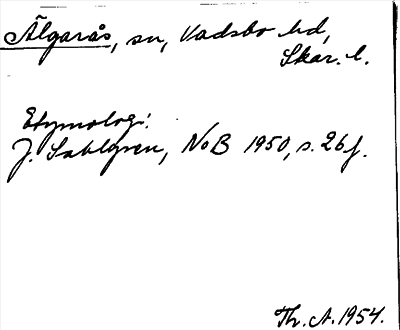 Älgarås, sn, Vadsbo hd,
Skar. l.
Etymologi:
J. Sahlgren, NoB 1950, s. 26 f.
Th. A. 1954.